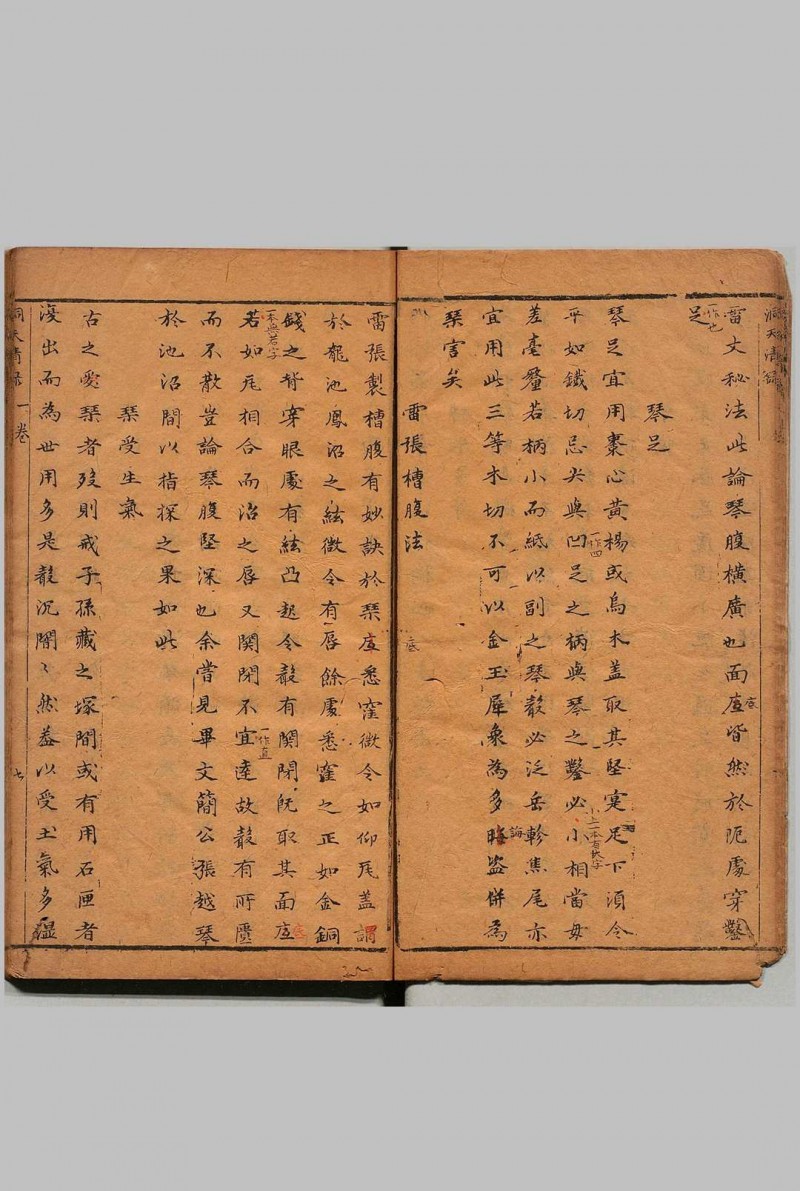 洞天清錄
雷文秘法此論琴腹橫廣也面底皆然於阨處穿鑿
底
一作也
足
琴足
琴足宜用棗心黃楊或烏木蓋取其堅寔足下須令
平如鐵切忌尖與凹足之柄與琴之鑿必小相當毋
一作四
小上一本有大字
差毫釐若柄小而紙以副之琴聲必泛岳軫焦尾亦
宜用此三等木切不可以金玉犀象為多晦盜併為
誨
琴害矣
雷張槽腹法
底
雷張製槽腹有妙訣於琴底悉窪微令如仰瓦蓋謂
於龍池鳳沼之絃微令有唇餘處悉窪之正如金銅
錢之背穿眼處有絃凸起令聲有関閉旣取其面底
底
一本無若字
若如瓦相合而治之唇又関閉不宜達故聲有所匱
一作直
而不散豈論琴腹堅深也余嘗見畢文簡公張越琴
於池沼間以指探之果如此
琴受生氣
古之愛琴者歿則戒子孫藏之塚間或有用石匣者
後出而為世用多是聲沉闇〻然葢以受土氣多濕
洞天清录 一卷 七